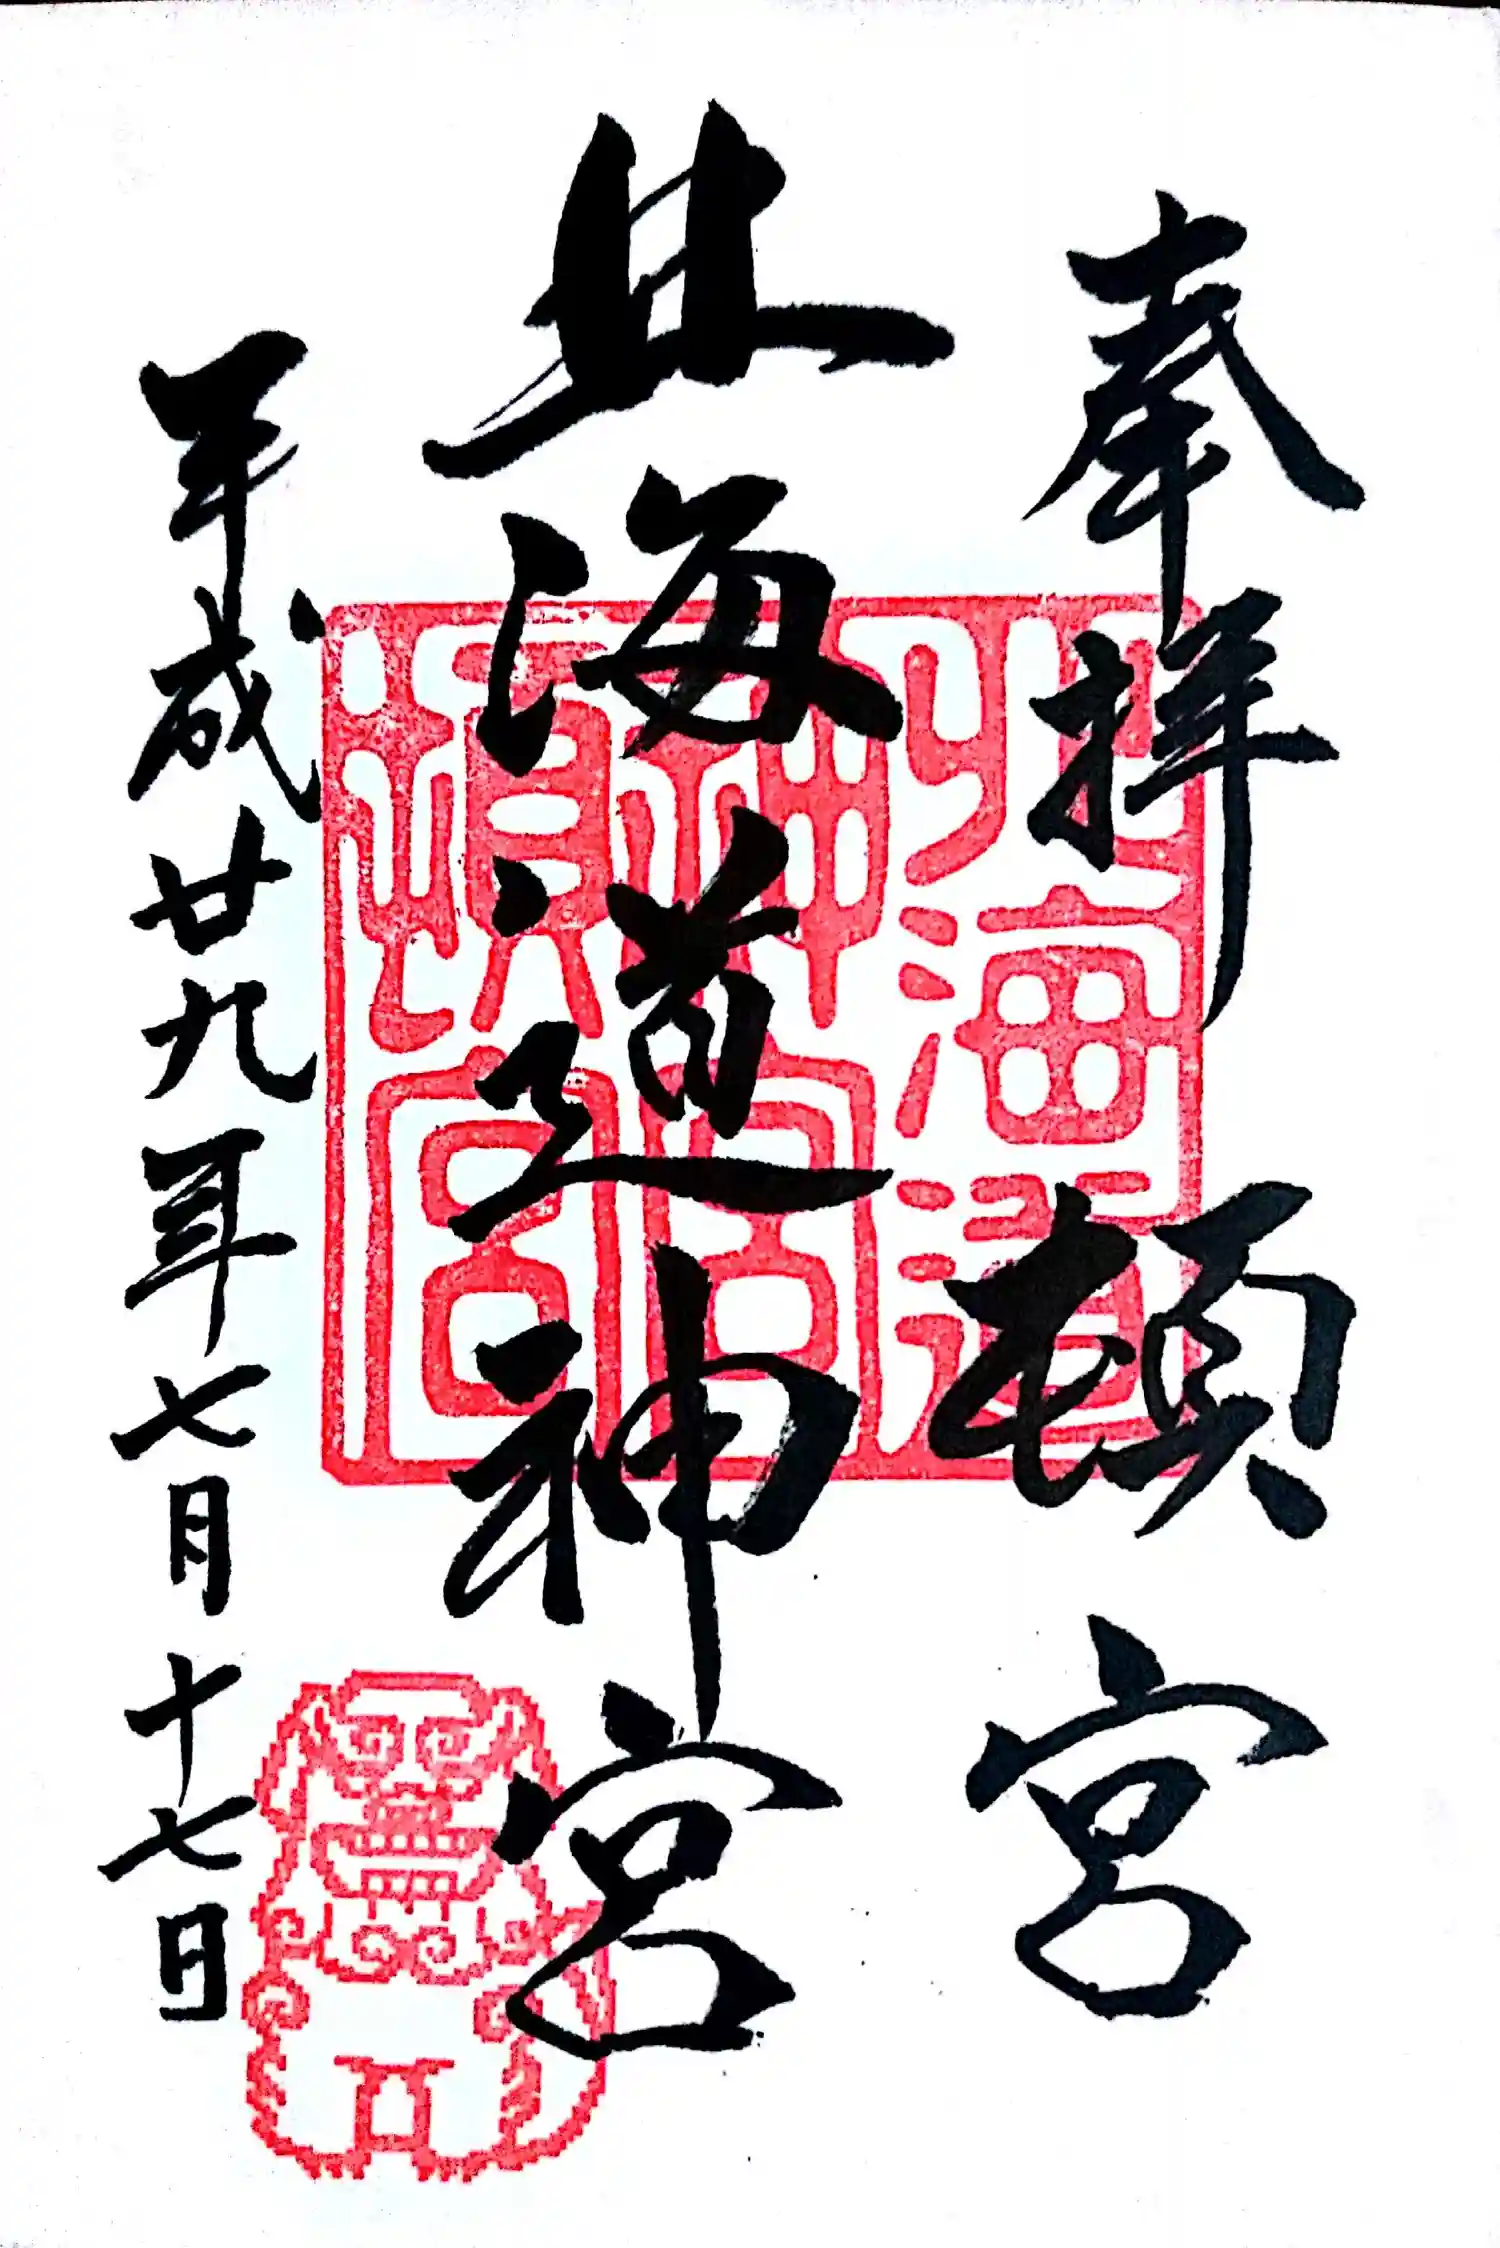 奉拝 頓宮
北海道神宮
平成廿九年七月十七日
北海道
神宮
頓宮